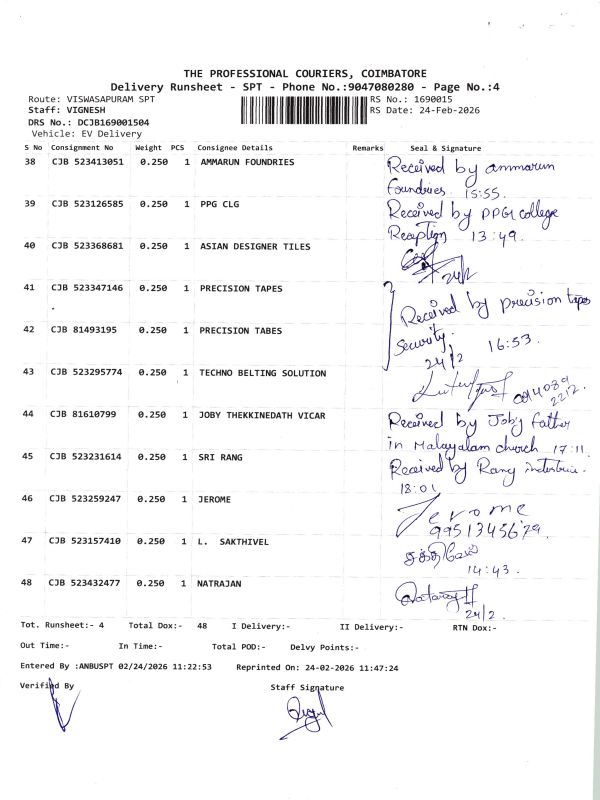 THE PROFESSIONAL COURIERS, COIMBATORE
Delivery Runsheet - SPT - Phone No.:9047080280 - Page No.:4
Route: VISWASAPURAM SPT RS No.: 1690015
Staff: VIGNESH RS Date: 24-Feb-2026
DRS No.: DCJB169001504
Vehicle: EV Delivery
S No Consignment No Weight PCS Consignee Details Remarks Seal & Signature
38 CJB 523413051 0.250 1 AMMARUN FOUNDRIES Received by ammarun
foundries. 15:55.
39 CJB 523126585 0.250 1 PPG CLG Received by PPG college
Reception 13:49.
40 CJB 523368681 0.250 1 ASIAN DESIGNER TILES
24/2
41 CJB 523347146 0.250 1 PRECISION TAPES Received by precision tapes
42 CJB 81493195 0.250 1 PRECISION TABES Security. 16:53.
24/2
43 CJB 523295774 0.250 1 TECHNO BELTING SOLUTION
44 CJB 81610799 0.250 1 JOBY THEKKINEDATH VICAR Received by Joby father
in Malayalam church 17:11.
45 CJB 523231614 0.250 1 SRI RANG Received by Rang
18:01
46 CJB 523259247 0.250 1 JEROME Jerome
9951345679.
47 CJB 523157410 0.250 1 L. SAKTHIVEL சக்திவேல்
14:43.
48 CJB 523432477 0.250 1 NATRAJAN
24/2.
Tot. Runsheet:- 4 Total Dox:- 48 I Delivery:- II Delivery:- RTN Dox:-
Out Time:- In Time:- Total POD:- Delvy Points:-
Entered By :ANBUSPT 02/24/2026 11:22:53 Reprinted On: 24-02-2026 11:47:24
Verified By Staff Signature